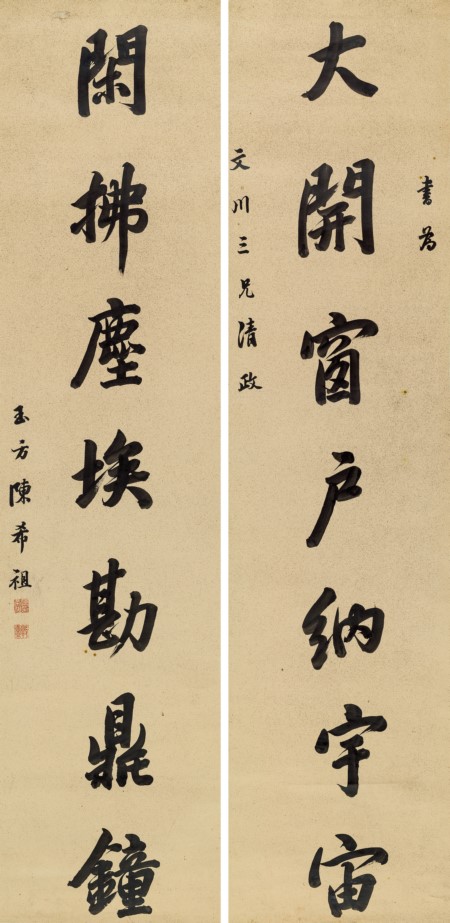 書為
大開窗戶納宇宙
文川三兄清政
閑拂塵埃勘鼎鐘
玉方陳希祖